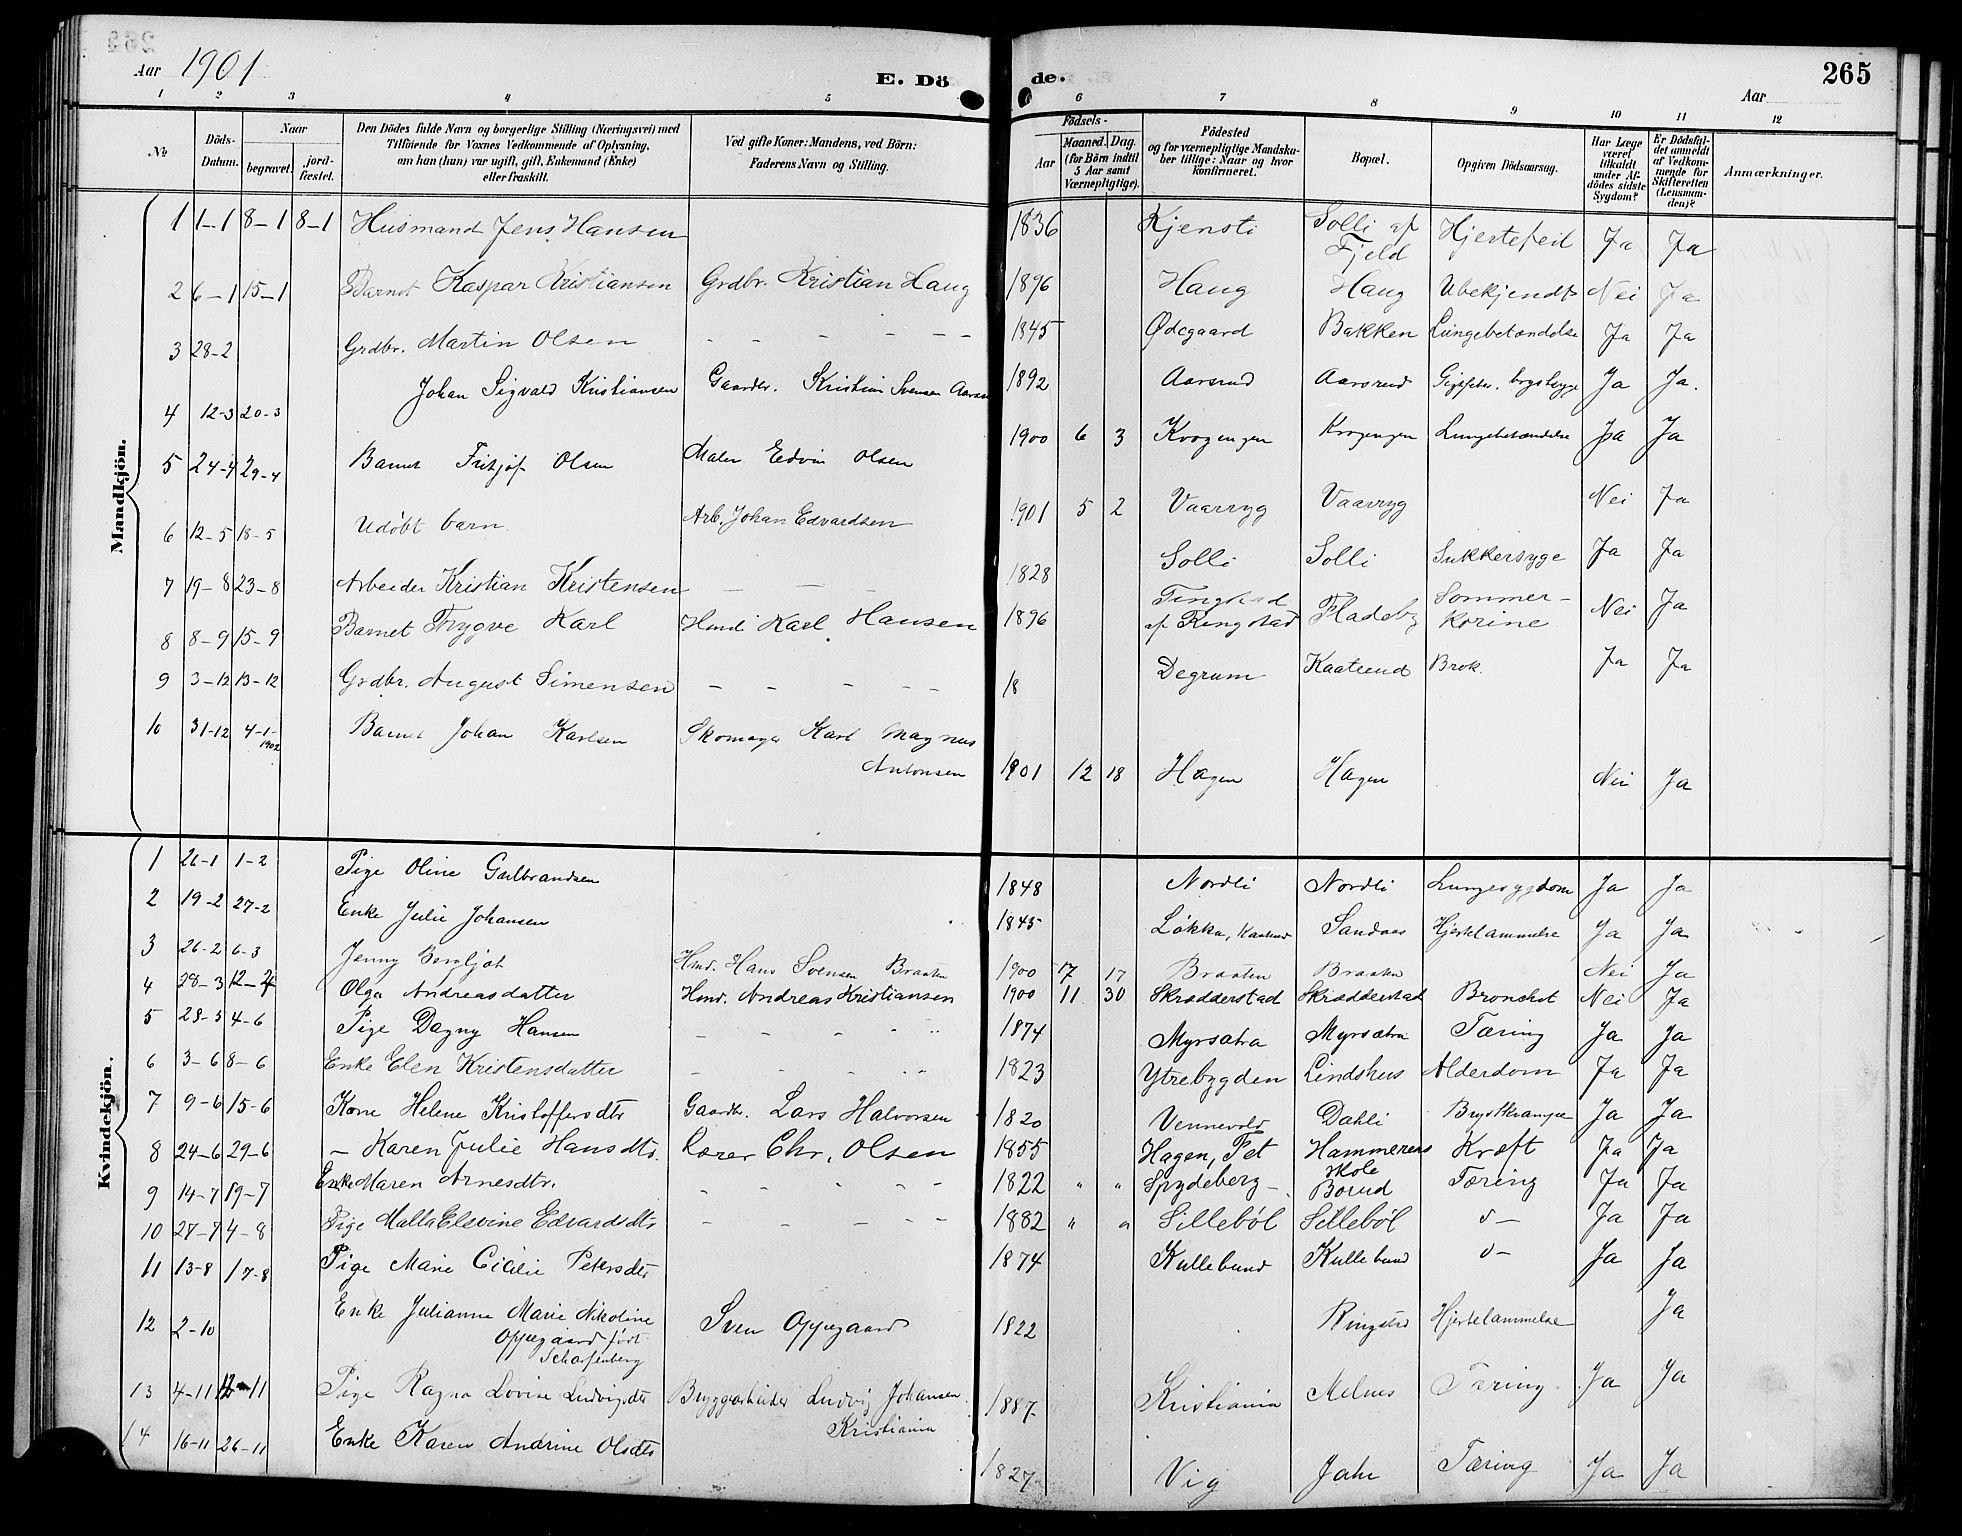 Aar 1901
E. Dö de.
265
Aar
1 2 3 4 5 6 7 8 9 10 11 12
No
Döds-Datum.
Naar
begravet.
jordfæstet.
Den Dödes fulde Navn og borgerlige Stilling (Næringsvei) med
Tilföiende for Voxnes Vedkommende af Oplysning,
om han (hun) var ugift, gift, Enkemand (Enke)
eller fraskilt.
Ved gifte Koner: Mandens, ved Börn:
Faderens Navn og Stilling.
Födsels-
Aar
Maaned. Dag.
(for Börn indtil
5 Aar samt
Værnepligtige).
Födested
og for værnepligtige Mandsku-
ber tillige: Naar og hvor
konfirmeret.
Bopæl.
Opgiven Dödsaarsag.
Har Læge
været
tilkaldt
under Af-
dödes sidste
Sygdom?
Er Dödsfal-
det anmeldt
af Vedkom-
mende for
Skifteretten
(Lensman-
den)?
Anmærkninger.
Mandkjön.
1 1-1 8-1 8-1 Husmand Jens Hansen 1836 Kjensli Solli af Fjeld Hjertefeil Ja Ja
2 6-1 15-1 Barnet Kaspar Kristiansen Grdbr. Kristian Haug 1896 Haug Haug Ubekjendt Nei Ja
3 28-2 Grdbr. Martin Olsen - - - - - 1845 Ødegaard Bakken Lungebetændelse Ja Ja
4 12-3 20-3 Johan Sigvald Kristiansen Gaardbr. Kristian Svensen 1892 Aarsrud Aarsrud Ja Ja.
5 24-4 29-4 Barnet Fritjof Olsen Maler Edvin Olsen 1900 6 3 Lungebetændelse Ja Ja
6 12-5 18-5 Udöbt barn Arb. Johan Edvardsen 1901 5 2 Vaarryg Vaarryg Nei Ja
7 19-8 23-8 Arbeider Kristian Kristensen - - - 1828 Solli Solli Sukkersyge Ja Ja
8 8-9 15-9 Barnet Trygve Karl Hmd. Karl Hansen 1896 Tingstad af Ringstad Fladeby Sommer-korine Nei Ja
9 3-12 13-12 Grdbr. August Simensen - - - - - 18 Degrum Kaaterud Brok. Ja Ja
10 31-12 4-1-1902 Barnet Johan Karlsen Skomager Karl Magnus Antonsen 1901 12 18 Hagen Hagen Nei Ja
Kvindekjön.
1 26-1 1-2 Pige Oline Gulbrandsen 1848 Nordli Nordli Lungesygdom Ja Ja
2 19-2 27-2 Enke Julie Johansen 1845 Løkka, Kaaterud Sandaas Hjertelammelse Ja Ja
3 26-2 6-3 Jenny Bergljot Hmd. Hans Svensen Braaten 1900 17 Braaten Braaten Nei Ja
4 28-3 12-4 Olga Andreasdatter Hmd. Andreas Kristiansen 1900 11 30 Skrædderstad Skrædderstad Bronchit Nei Ja
5 28-5 4-6 Pige Dagny Hansen - - - 1874 Myrsætra Myrsætra Tæring Ja Ja
6 3-6 8-6 Enke Elen Kristensdatter - - - 1823 Ytrebygden Lindshus Alderdom Ja Ja
7 9-6 15-6 Kone Helene Kristoffersdtr Gaardbr. Lars Halvorsen 1820 Vennevold Dahli Brystkrampe Ja Ja
8 24-6 29-6 - Karen Julie Hansdtr. Lærer Chr. Olsen 1855 Hagen, Fet Hammerens skole Kræft Ja Ja
9 14-7 19-7 Enke Maren Arnesdtr. - - - - - 1822 " " Spydeberg - Borud Tæring Ja Ja
10 27-7 4-8 Pige Malla Elevine Edvardsdtr - - - - - 1882 " " Sillebøl Sillebøl d- Ja Ja
11 13-8 17-8 Pige Marie Cicilie Petersdtr 1874 Kullebund Kullebund d- Ja Ja
12 2-10 Enke Julianne Marie Nikoline Oppegaard født Scharfenberg Sven Oppegaard 1822 Ringstad Hjertelammelse Ja
13 4-11 12-11 Pige Ragna Lovise Ludvigsdtr Bryggearbeider Ludvig Johansen Kristiania 1887 Kristiania Melnes Tæring Ja Ja
14 16-11 26-11 Enke Karen Andrine Olsdtr 1827 Vig Jahr Tæring Ja Ja